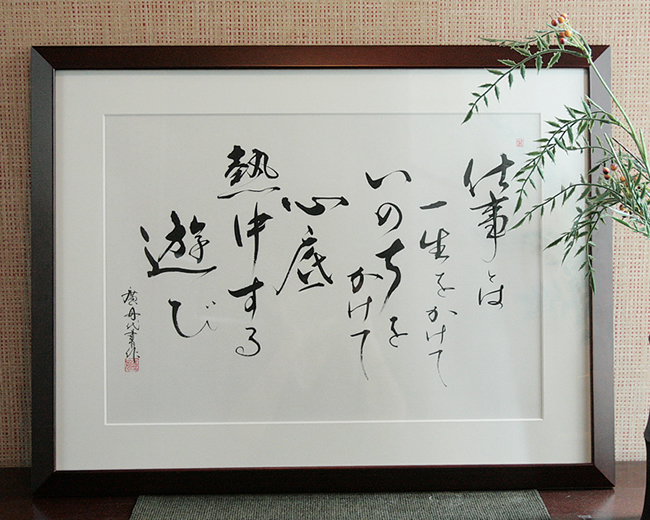 仕事とは
一生をかけて
いのちを
かけて
心底
熱中する
遊び